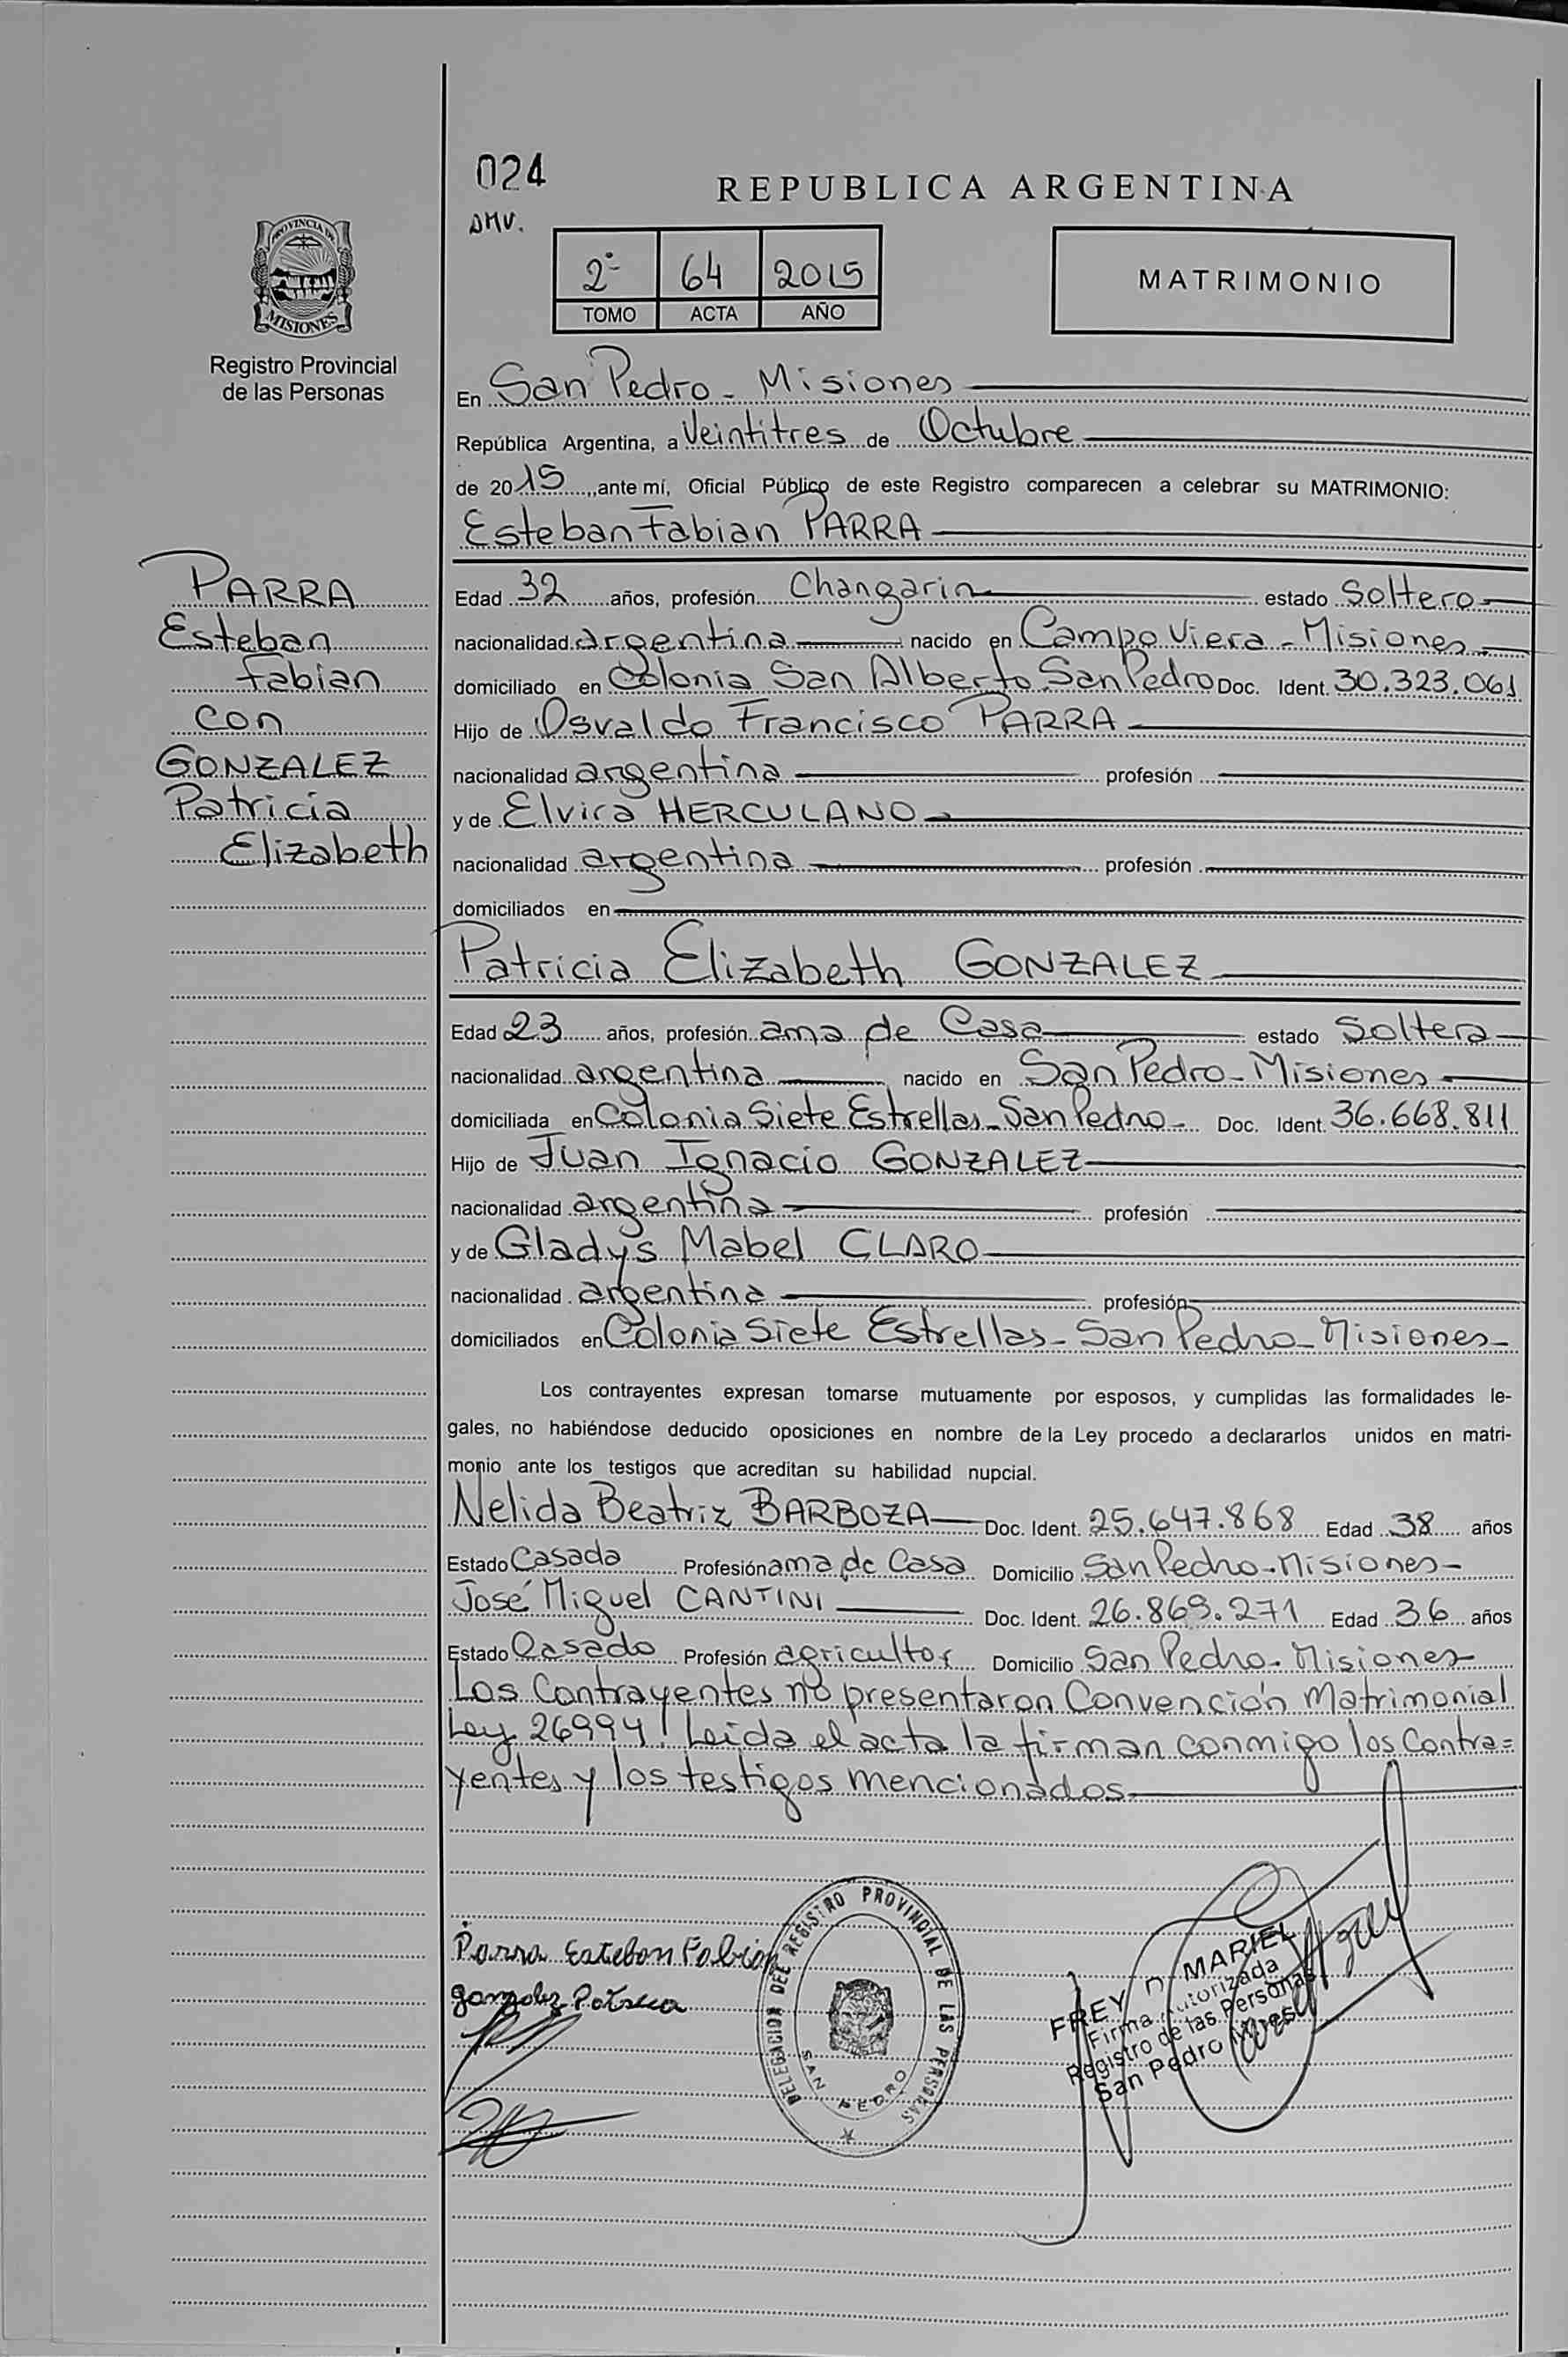 024
REPUBLICA ARGENTINA
DMV.
2º 64 2015
TOMO ACTA AÑO
MATRIMONIO
PROVINCIA DE
MISIONES
Registro Provincial
de las Personas
En San Pedro - Misiones
República Argentina, a Veintitres de Octubre
de 2015, ante mí, Oficial Público de este Registro comparecen a celebrar su MATRIMONIO:
Esteban Fabian PARRA
PARRA
Esteban
Fabian
con
GONZALEZ
Patricia
Elizabeth
Edad 32 años, profesión Changarin estado Soltero
nacionalidad argentina nacido en Campo Viera - Misiones
domiciliado en Colonia San Alberto San Pedro Doc. Ident. 30.323.061
Hijo de Osvaldo Francisco PARRA
nacionalidad argentina profesión
y de Elvira HERCULANO
nacionalidad argentina profesión
domiciliados en
Patricia Elizabeth GONZALEZ
Edad 23 años, profesión ama de Casa estado Soltera
nacionalidad argentina nacido en San Pedro - Misiones
domiciliada en Colonia Siete Estrellas - San Pedro - Doc. Ident. 36.668.811
Hijo de Juan Ignacio GONZALEZ
nacionalidad argentina profesión
y de Gladys Mabel CLARO
nacionalidad argentina profesión
domiciliados en Colonia Siete Estrellas - San Pedro - Misiones -
Los contrayentes expresan tomarse mutuamente por esposos, y cumplidas las formalidades le-
gales, no habiéndose deducido oposiciones en nombre de la Ley procedo a declararlos unidos en matri-
monio ante los testigos que acreditan su habilidad nupcial.
Nelida Beatriz BARBOZA Doc. Ident. 25.647.868 Edad 38 años
Estado Casada Profesión ama de Casa Domicilio San Pedro - Misiones -
José Miguel CANTINI Doc. Ident. 26.869.271 Edad 36 años
Estado Casado Profesión agricultor Domicilio San Pedro - Misiones
Los Contrayentes no presentaron Convención Matrimonial
Ley 26994! Leida el acta la firman conmigo los Contra=
yentes y los testigos mencionados
Parra Esteban Fabian
DELEGACION DEL REGISTRO PROVINCIAL DE LAS PERSONAS
SAN PEDRO
FREY MARIEL
Firma Autorizada
Registro de las Personas
San Pedro